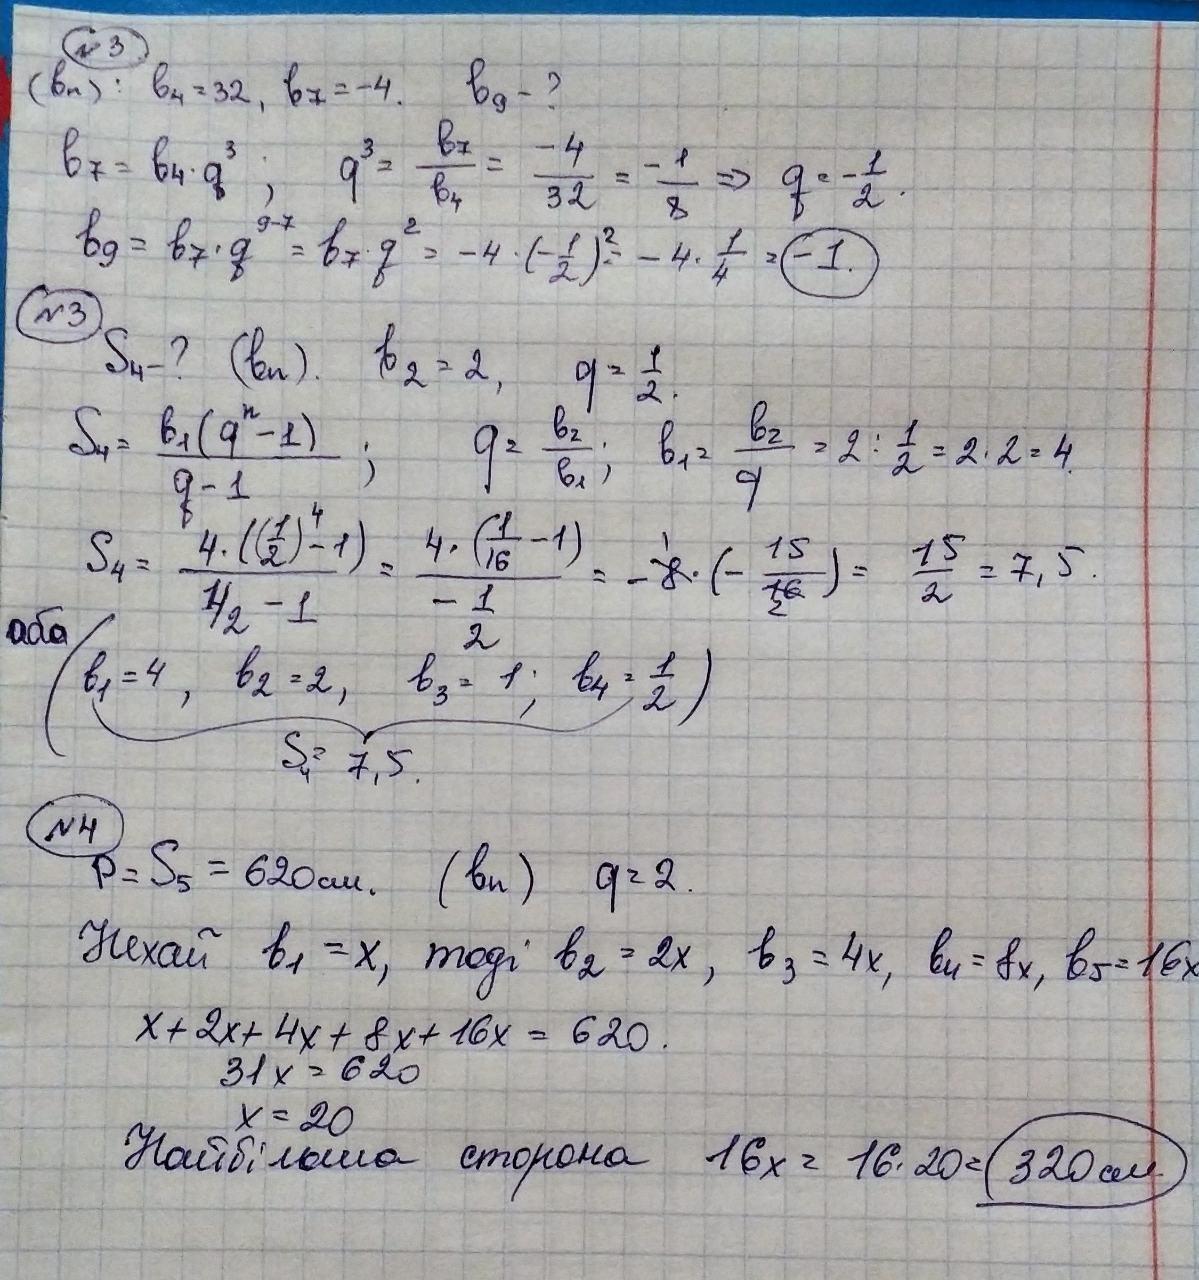 №3
(bn): b4=32, b7=-4. b9-?
b7=b4·q^3; q^3=b7/b4=-4/32=-1/8 ⇒ q=-1/2.
b9=b7·q^(9-7)=b7·q^2=-4·(-1/2)^2=-4·1/4=-1.
№3
S4-? (bn). b2=2, q=1/2.
S4=b1(q^n-1)/(q-1); q=b2/b1; b1=b2/q=2:1/2=2·2=4.
S4=4·((1/2)^4-1)/(1/2-1)=4·(1/16-1)/(-1/2)=-8·(-15/16)=15/2=7,5.
або
(b1=4, b2=2, b3=1; b4=1/2)
S4=7,5.
№4
P=S5=620см. (bn) q=2.
Нехай b1=x, тоді b2=2x, b3=4x, b4=8x, b5=16x
x+2x+4x+8x+16x=620.
31x=620
x=20
Найбільша сторона 16x=16·20=320см